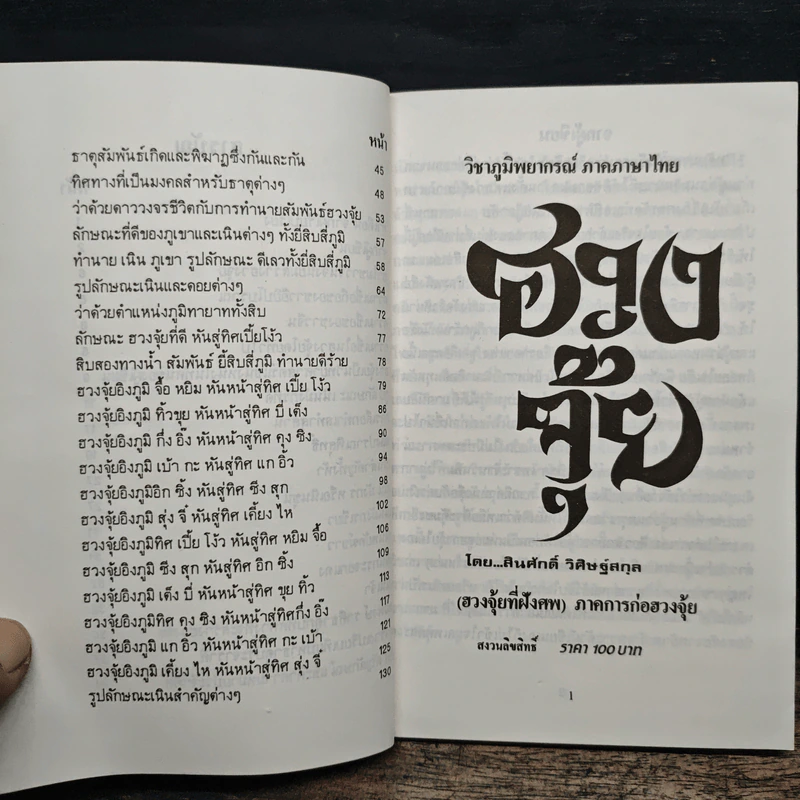 หน้า
ธาตุสัมพันธ์เกิดและพิฆาฏซึ่งกันและกัน 45
ทิศทางที่เป็นมงคลสำหรับธาตุต่างๆ 48
ว่าด้วยดาววงจรชีวิตกับการทำนายสัมพันธ์ฮวงจุ้ย 53
ลักษณะที่ดีของภูเขาและเนินต่างๆ ทั้งยี่สิบสี่ภูมิ 57
ทำนาย เนิน ภูเขา รูปลักษณะ ดีเลวทั้งยี่สิบสี่ภูมิ 58
รูปลักษณะเนินและดอยต่างๆ 64
ว่าด้วยตำแหน่งภูมิทายาททั้งสิบ 72
ลักษณะ ฮวงจุ้ยที่ดี หันสู่ทิศเปี้ยโง้ว 77
สิบสองทางน้ำ สัมพันธ์ ยี่สิบสี่ภูมิ ทำนายดีร้าย 78
ฮวงจุ้ยอิงภูมิ จื้อ หยิม หันหน้าสู่ทิศ เปี้ย โง้ว 79
ฮวงจุ้ยอิงภูมิ ทิ้วขุย หันหน้าสู่ทิศ บี่ เต็ง 86
ฮวงจุ้ยอิงภูมิ กึ่ง อิ๊ง หันหน้าสู่ทิศ คุง ซิง 90
ฮวงจุ้ยอิงภูมิ เบ้า กะ หันสู่ทิศ แก อิ้ว 94
ฮวงจุ้ยอิงภูมิอิก ซิ้ง หันสู่ทิศ ซึง สุก 98
ฮวงจุ้ยอิงภูมิ สุ่ง จี๋ หันสู่ทิศ เคี้ยง ไห 102
ฮวงจุ้ยอิงภูมิทิศ เปี้ย โง้ว หันสู่ทิศ หยิม จื้อ 106
ฮวงจุ้ยอิงภูมิ ซึง สุก หันสู่ทิศ อิก ซิ้ง 109
ฮวงจุ้ยอิงภูมิ เต็ง บี่ หันหน้าสู่ทิศ ขุย ทิ้ว 113
ฮวงจุ้ยอิงภูมิทิศ คุง ซิง หันหน้าสู่ทิศกึ่ง อิ๊ง 117
ฮวงจุ้ยอิงภูมิ แก อิ้ว หันหน้าสู่ทิศ กะ เบ้า 121
ฮวงจุ้ยอิงภูมิ เคี้ยง ไห หันหน้าสู่ทิศ สุ่ง จี๋ 125
รูปลักษณะเนินสำคัญต่างๆ 130
วิชาภูมิพยากรณ์ ภาคภาษาไทย
ฮวง
จุ๊ย
โดย...สินศักดิ์ วิศิษฐ์สกุล
(ฮวงจุ้ยที่ฝังศพ) ภาคการก่อฮวงจุ้ย
สงวนลิขสิทธิ์ ราคา 100 บาท
1